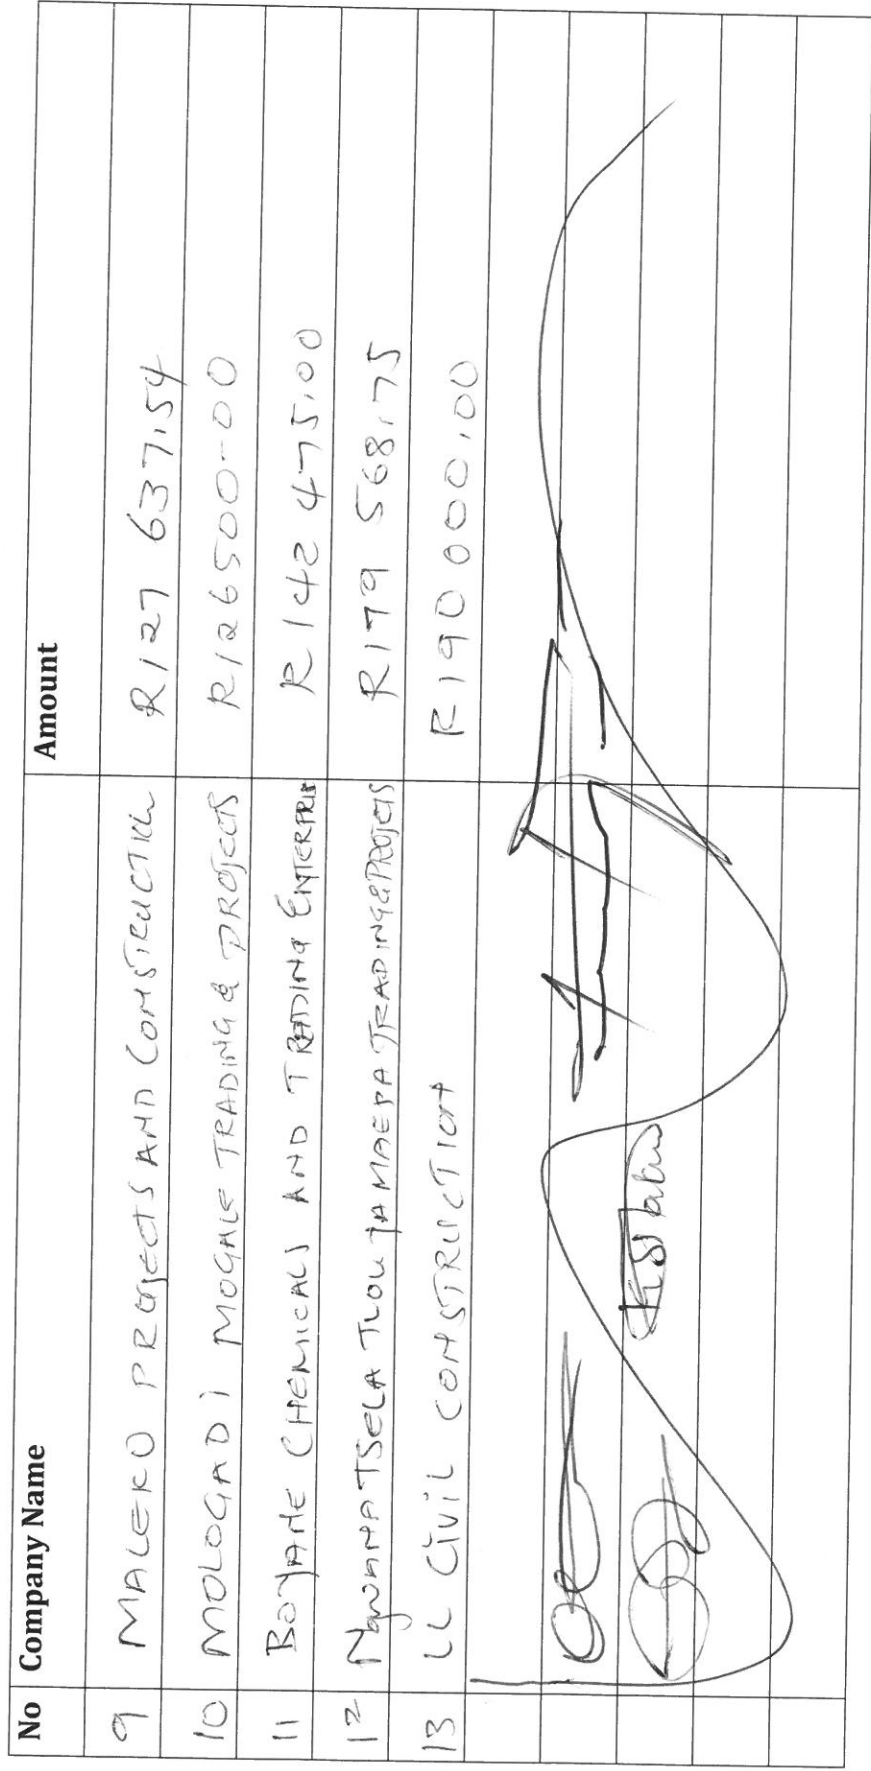 No Company Name Amount
9 MALEKO PROJECTS AND CONSTRUCTION R127 637.54
10 MOLOGADI MOGALE TRADING & PROJECTS R126500-00
11 BOJANE CHEMICALS AND TRADING ENTERPRIS R142 475.00
12 TLOU JA MAEBA TRADING & PROJECTS R179 568.75
13 LL CIVIL CONSTRUCTION R190 000.00